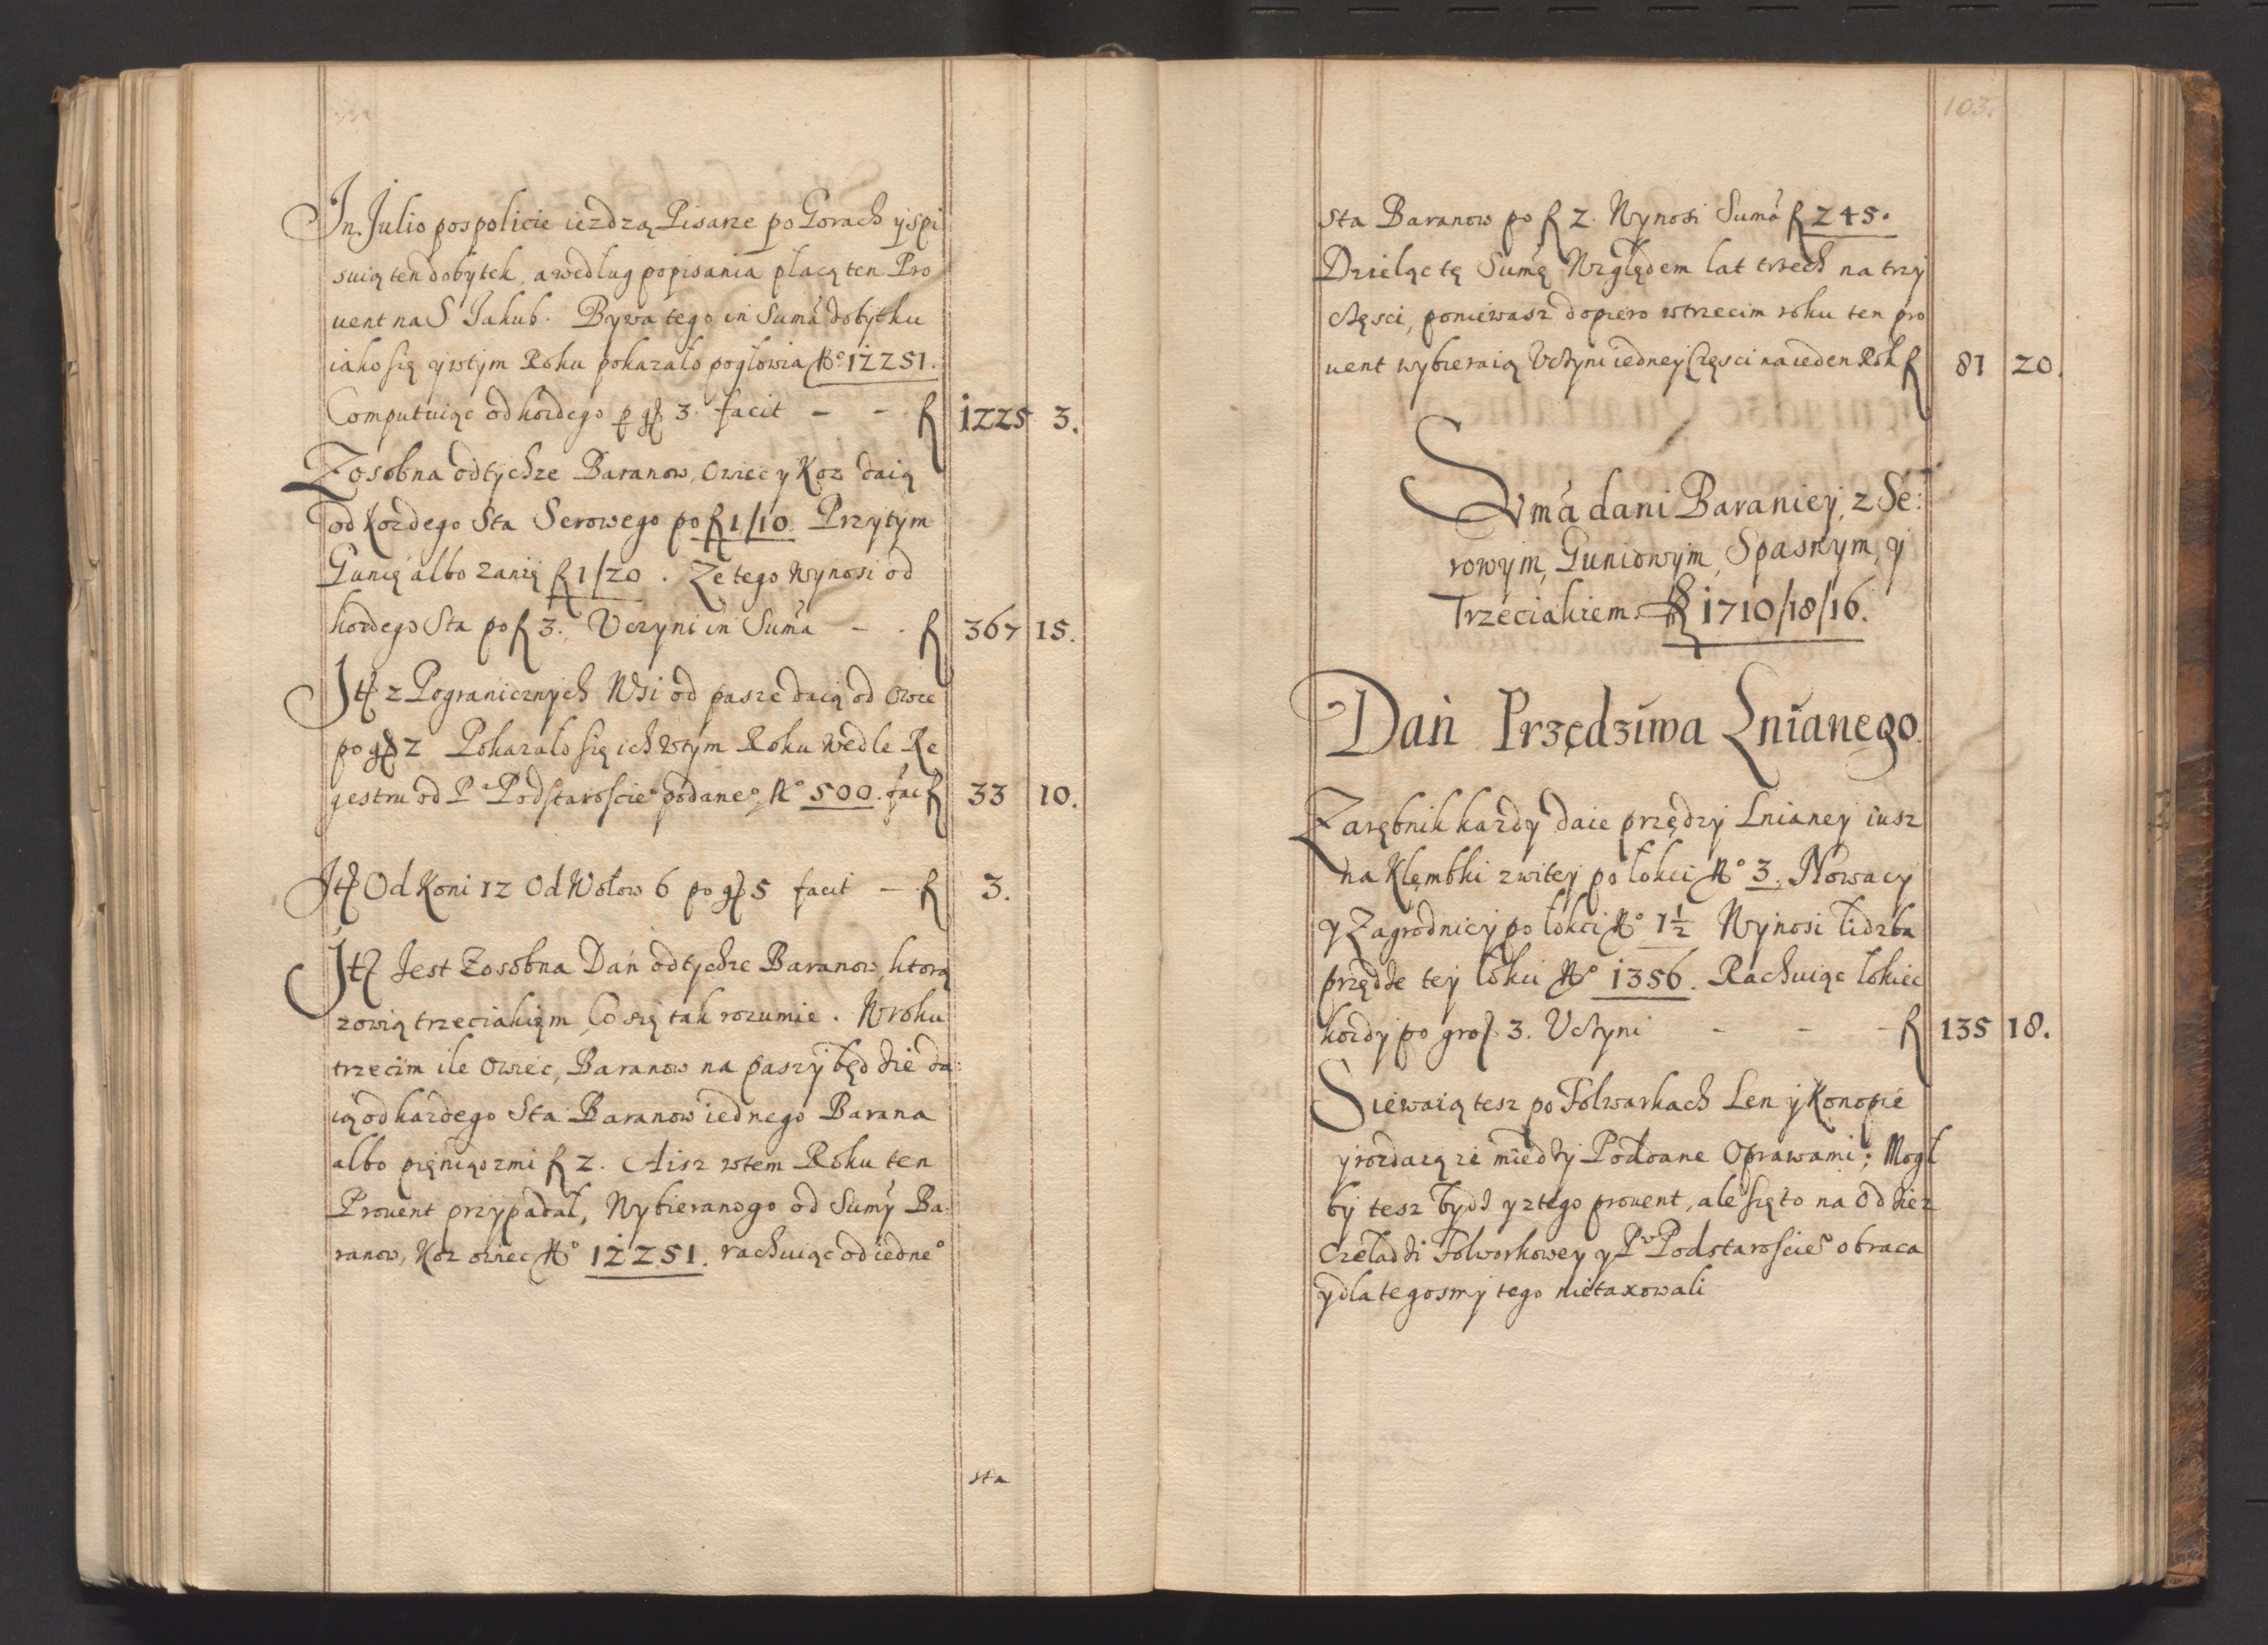 In Julio pospolicie iezdzą Pisarze po Gorach y spi
suią ten dobytek, a według popisania płacą ten Pro
uent na S Jakub. Bywa tego in Suma dobytku
iako się y wtym Roku pokazało pogłowia No 12251.
Computuiąc od kozdego p gf 3. facit - - f 1225 3.
Zosobna od tychze Baranow, Owiec y Koz daią
od kozdego Sta Serowego po f 1/10. Przytym
Gunię albo zanię f 1/20. Ze tego Wynosi od
kozdego Sta po f 3., Uczyni in Suma - - f 367 15.
Itf z Pogranicznych Wsi od pasze daią od owce
po gf 2 Pokazało się ich wtym Roku wedle Re
gestru od P Podstarościeo podaneo, No 500. fac f 33 10.
Itf Od Koni 12 Od Wołow 6 po gf 5 facit - f 3.
Itf Jest Zosobna Dań od tychze Baranow, ktorą
zowią trzeciakięm, Co się tak rozumie. W roku
trzecim ile Owiec, Baranow na paszy będzie da:
ią od każdego Sta Baranow iednego Barana
albo pięniądzmi f 2. Aisz wtem Roku ten
Prouent przypadał, Wybieranogo od Sumy Ba:
ranow, Koz owiec No 12251. rachuiąc od iedneo
sta
103.
Sta Baranow po f 2. Wynosi Suma f 245.
Dzieląc tę Sumę Względem lat trzech na trzy
częsci, poniewasz dopiero wtrzecim roku ten pro
uent wybieraią Uczyni iedney Częsci na ieden Rok f 81 20.
Suma dani Baraniey, z Se:
rowym, Guniowym, Spasnym, y
Trzeciakiem. f 1710/18/16.
Dań Przędziwa Lnianego.
Zarębnik kazdy daie przędzy Lnianey iusz
na Klęmbki zwitey po łokci No 3, Nowacy
y Zagrodnicy po łokci No 1½ Wynosi lidzba
przędze tey łokci No 1356. Rachuiąc łokiec
kozdy po grof 3. Uczyni - - - f 135 18.
Siewaią tesz po Folwarkach Len y Konopie
y rozdaią ie między Poddane Oprawami; Mogł
by tesz bydź y z tego prouent, ale się to na Odziez
Czeladzi Folworkowey y Pw Podstaroscieo obraca
y dla tegosmy tego nietaxowali